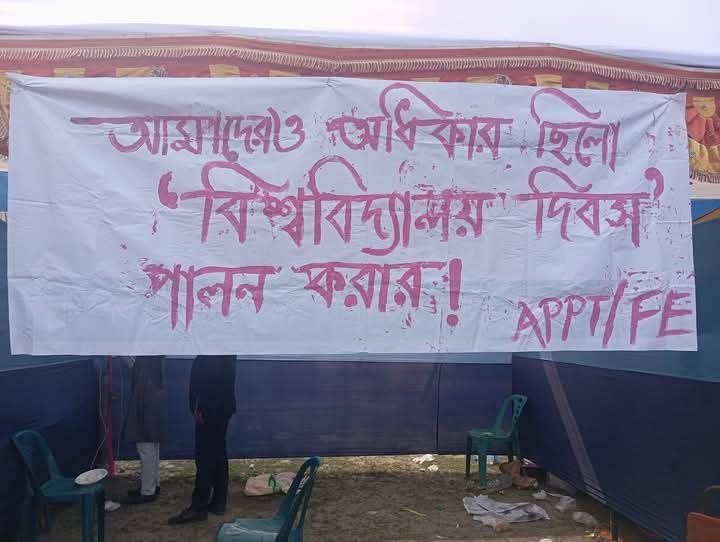 আমাদেরও অধিকার ছিলো
'বিশ্ববিদ্যালয় দিবস'
পালন করার!
APPT/FE